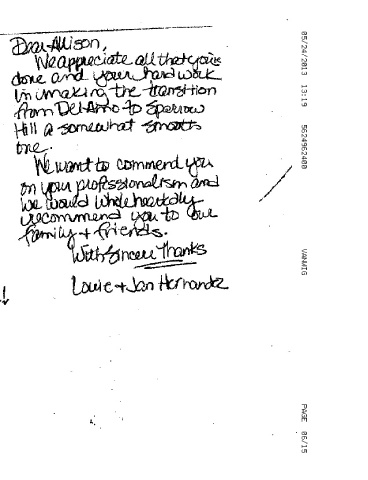 Dear Allison,
We appreciate all that you've
done and your hard work
in making the transition
from Del Amo to Sparrow
Hill a somewhat smooth
one.
We want to commend you
on your professionalism and
we would wholeheartedly
recommend you to our
family + friends.
With Sincere Thanks
Louie + Jan Hernandez
05/24/2013 13:19 5624962400 VANMIG PAGE 06/15